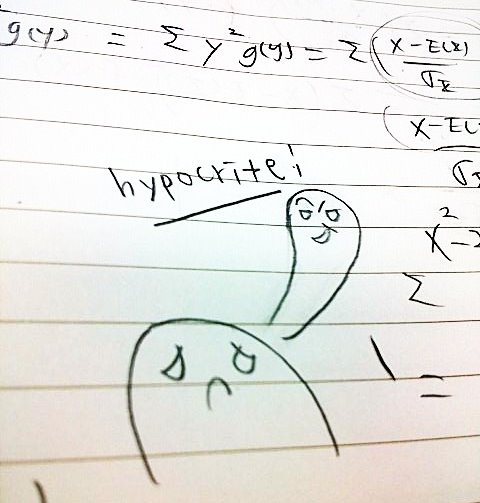 g(y) = Σ y²g(y) = Σ (x-E(x)/σx
x-E(
σ
hypocrite!
x²-2
Σ
=